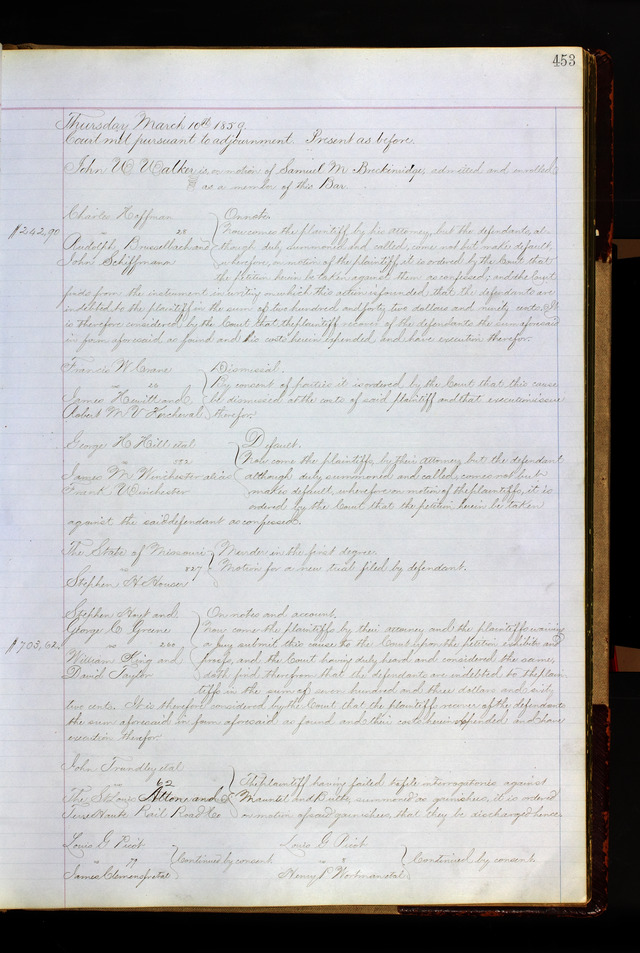 453
Thursday March 10th 1859
Court met pursuant to adjournment. Present as before.
John W Walker is, on motion of Samuel M Breckinridge, admitted and enrolled
as a member of this Bar.
Charles Hoffman On note
$242,90 vs 28 Now comes the plaintiff by his attorney, but the defendants, al-
Rudolph, and though duly summoned and called, come not but make default,
John Schiffmann wherefore, on motion of the plaintiff it is ordered by the Court that
the petition herein be taken against them as confessed; and the Court
finds from the instrument in writing on which this action is founded, that the defendants are
indebted to the plaintiff in the sum of two hundred and forty two dollars and ninety cents. It
is therefore considered by the Court that the plaintiff recover of the defendants the sum aforesaid
in form aforesaid as found and his costs herein expended, and have execution therefor.
Francis W Crane Dismissal.
vs 20 By consent of parties it is ordered by the Court that this cause
James Hewitt and be dismissed at the costs of said plaintiff and that execution issue
Robert M V Kercheval therefor.
George H Hill etal Default.
vs Now come the plaintiffs, by their attorney but the defendant
James M Winchester alias although duly summoned and called, comes not but
Frank Winchester makes default, wherefore on motion of the plaintiffs, it is
ordered by the Court that the petition herein be taken
against the said defendant as confessed.
The State of Missouri Murder in the first degree.
vs 827 Motion for a new trial filed by defendant.
Stephen H Houser
Stephen Hoyt and On notes and account,
George C Greene Now come the plaintiffs by their attorney and the plaintiffs waiving
$703,62 vs 260 a jury submit this cause to the Court upon the petition exhibits and
William King and proofs, and the Court having duly heard and considered the same,
David Taylor doth find therefrom that the defendants are indebted to the plain-
tiffs in the sum of seven hundred and three dollars and sixty
two cents. It is therefore considered by the Court that the plaintiffs recover of the defendants
the sum aforesaid in form aforesaid as found and their costs herein expended and have
execution therefor.
John Trundley etal
vs 62 The plaintiff having failed to file interrogatories against
The St Louis Alton and and Butts, summoned as garnishees, it is ordered
Terre Haute Rail Road Co on motion of said garnishees, that they be discharged hence.
Louis G Picot Louis G Picot
vs 79 Continued by consent vs 8 Continued by consent.
James Clemens Jr etal Henry P Workman etal